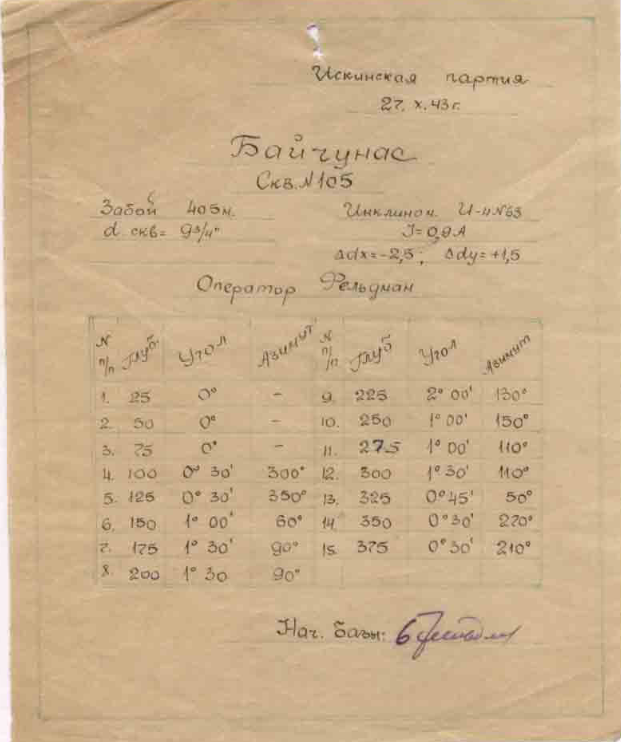 Искинская партия
27. X. 43 г.
Байчунас
Скв. N 105
Забой 405 м. Инклином. И-II N 53
d скв = 9 3/4" J = 0,9 А
Δdx = -2,5; Δdy = +1,5
Оператор Фельдман
N п/п Глуб. Угол Азимут N п/п Глуб Угол Азимут
1. 25 0° - 9. 225 2° 00' 130°
2. 50 0° - 10. 250 1° 00' 150°
3. 75 0° - 11. 275 1° 00' 110°
4. 100 0° 30' 300° 12. 300 1° 30' 110°
5. 125 0° 30' 350° 13. 325 0° 45' 50°
6. 150 1° 00' 60° 14. 350 0° 30' 270°
7. 175 1° 30' 90° 15. 375 0° 30' 210°
8. 200 1° 30 90°
Нач. базы: